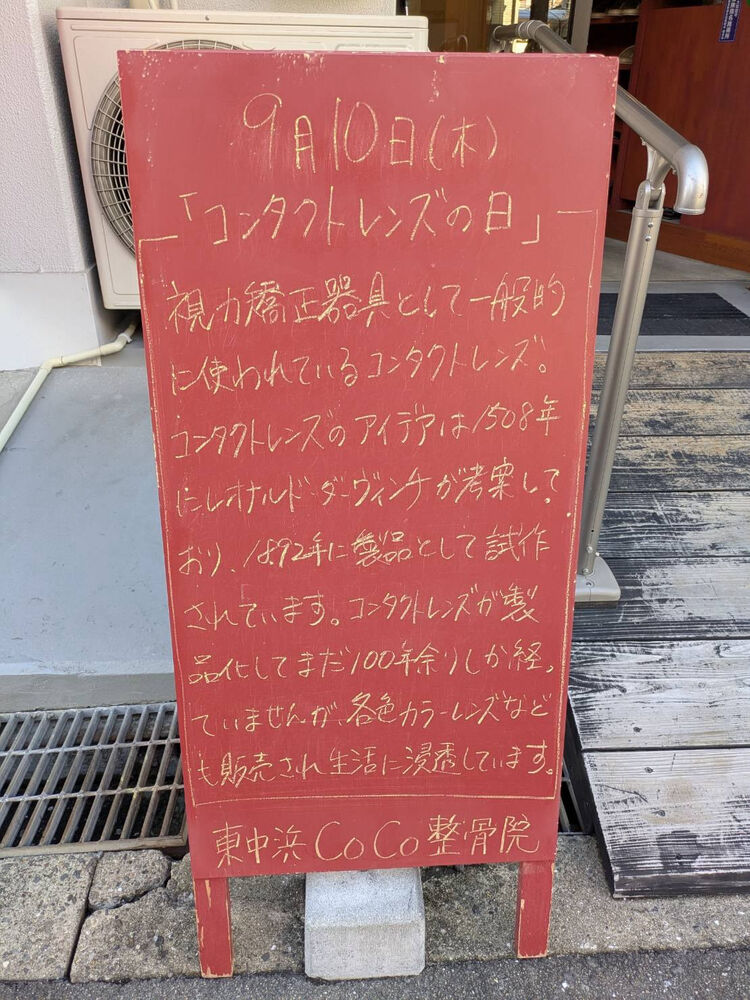 9月10日(木)
「コンタクトレンズの日」
視力矯正器具として一般的
に使われているコンタクトレンズ。
コンタクトレンズのアイデアは1508年
にレオナルド・ダ・ヴィンチが考案して
おり、1892年に製品として試作
されています。コンタクトレンズが製
品化してまだ100年余りしか経っ
ていませんが、各色カラーレンズなど
も販売され生活に浸透しています。
東中浜CoCo整骨院